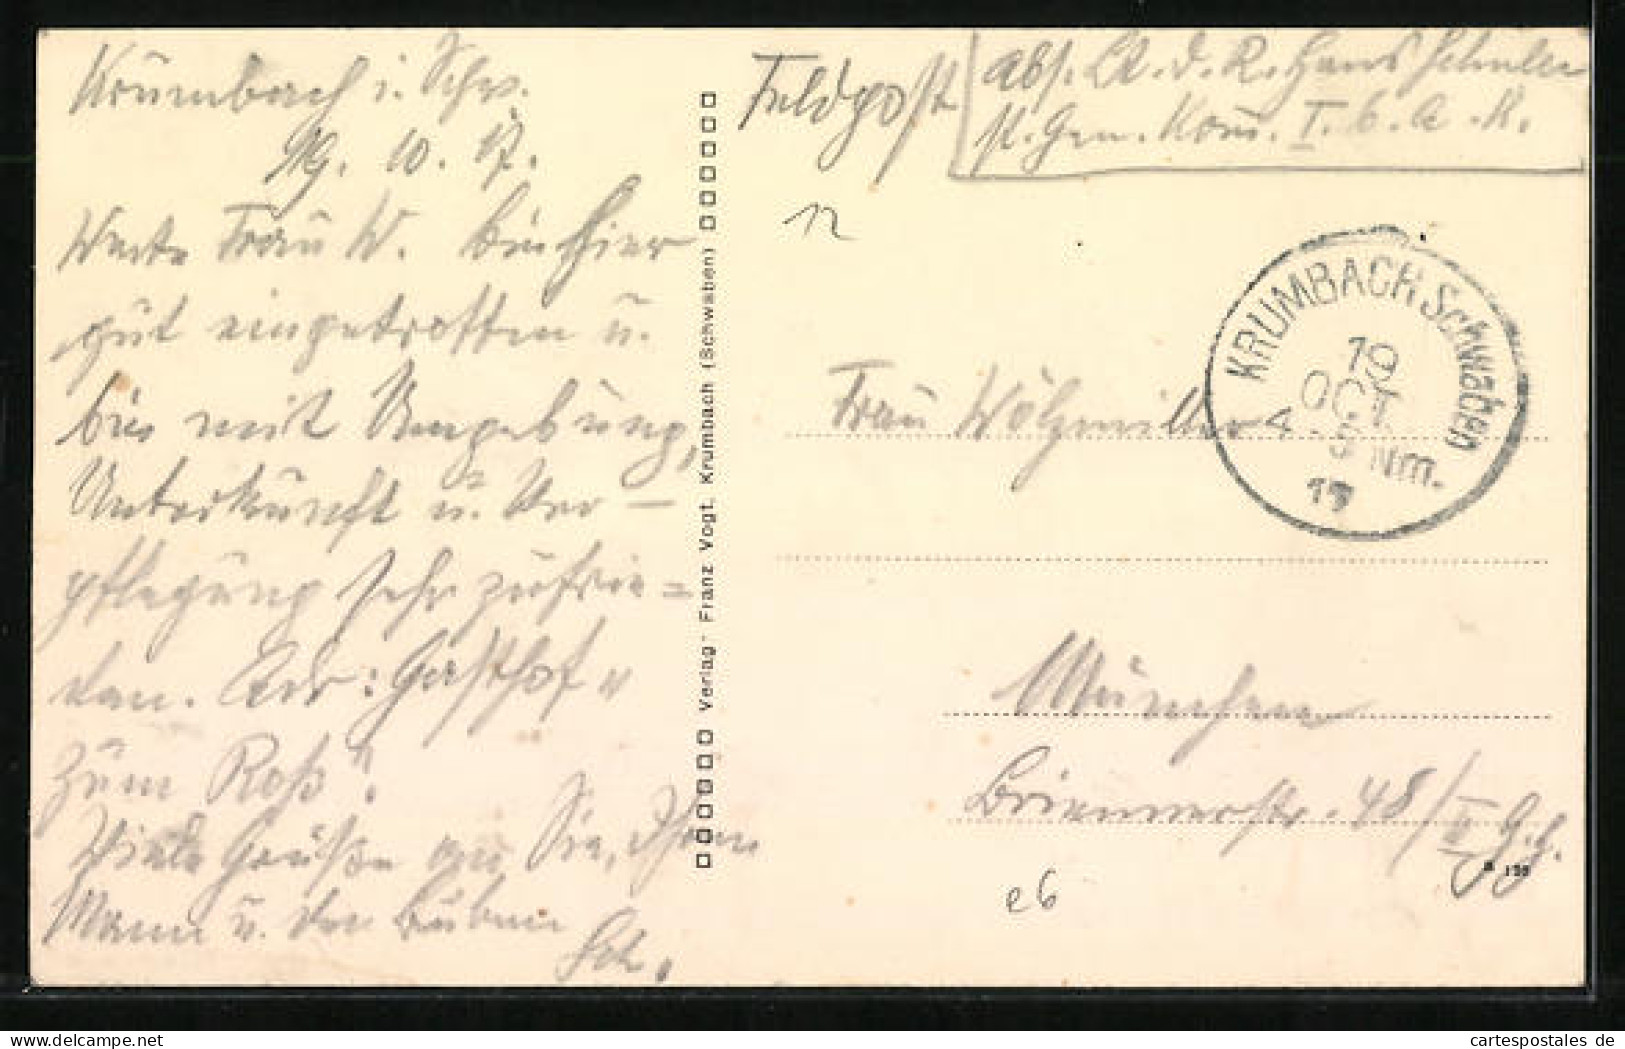 Krumbach i. Schw.
19. 10. 17.
Werte Frau W. bin hier
gut eingetroffen u.
bin mit Umgebung,
Unterkunft u. Ver-
pflegung sehr zufrie=
den. Adr: Gasthof "
zum Roß".
Viele Grüße an Sie, Ihren
Mann u. den Buben
Sch.
Verlag Franz Vogt, Krumbach (Schwaben)
Feldpost
Abs. Lt. d. R. Hans Schüler
st. Gen. Kom. I. b. A. K.
12
KRUMBACH Schwaben
19
OCT.
4-5 Nm.
17
Frau Wölzmiller
München
Briennerstr. 48/II G.G.
e6
cartespostales de